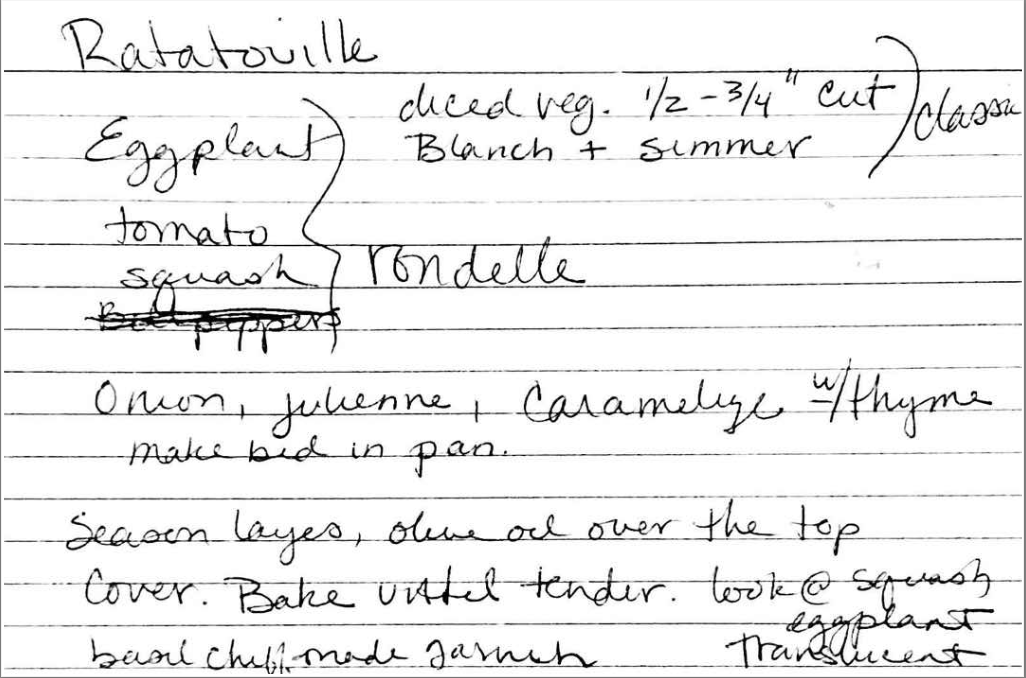 Ratatouille
diced veg. 1/2 - 3/4" cut
Blanch + simmer
classic
Eggplant
tomato
squash
rondelle
Bell peppers
Onion, julienne, Caramelize w/thyme
make bed in pan.
Season layes, olive oil over the top
Cover. Bake until tender. look @ squash
eggplant
translucent
basil chiffonade garnish